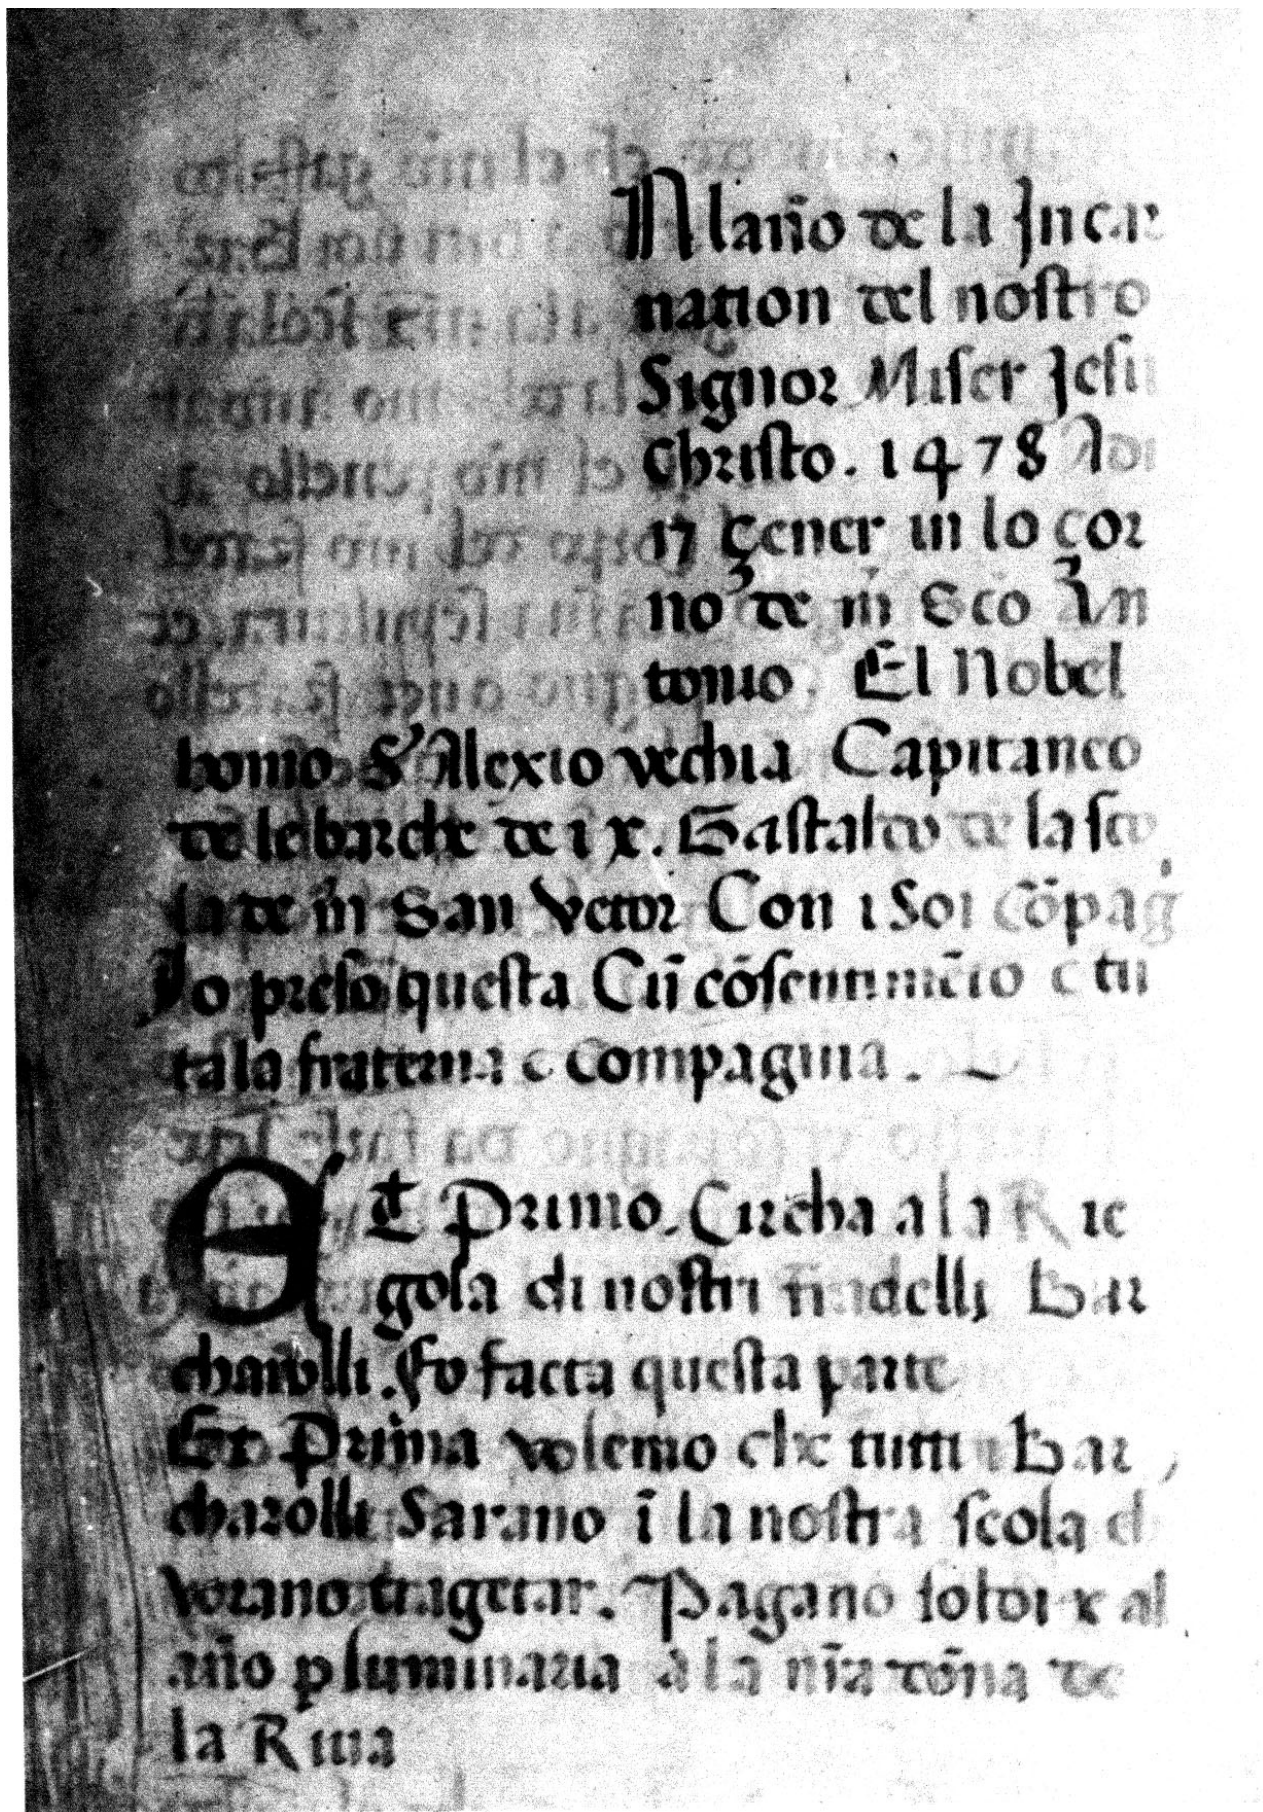 IN lan̄o de la Incar
nation del nostro
Signor Miser Jesu
Christo. 1478 Adi
17 çener in lo çor
no de m̄ Sc̄o An
tonio. El Nobel
homo S' Alexio vechia Capitaneo
de le barche de i x. Gastaldo de la sco
la de m̄ San Vetor Con i Soi cōpag
Fo preso questa Cū cōsentimēto e tu
ta la fraterna e compagnia.
Et Primo. Circha a la Rie
gola di nostri fradelli Bar
charolli. Fo facta questa parte
Et Prima volemo che tutti i Bar
charolli Sarano ī la nostra scola
Vorano tragetar. Pagano soldi x al
an̄o p luminaria a la nr̄a dōna de
la Riua